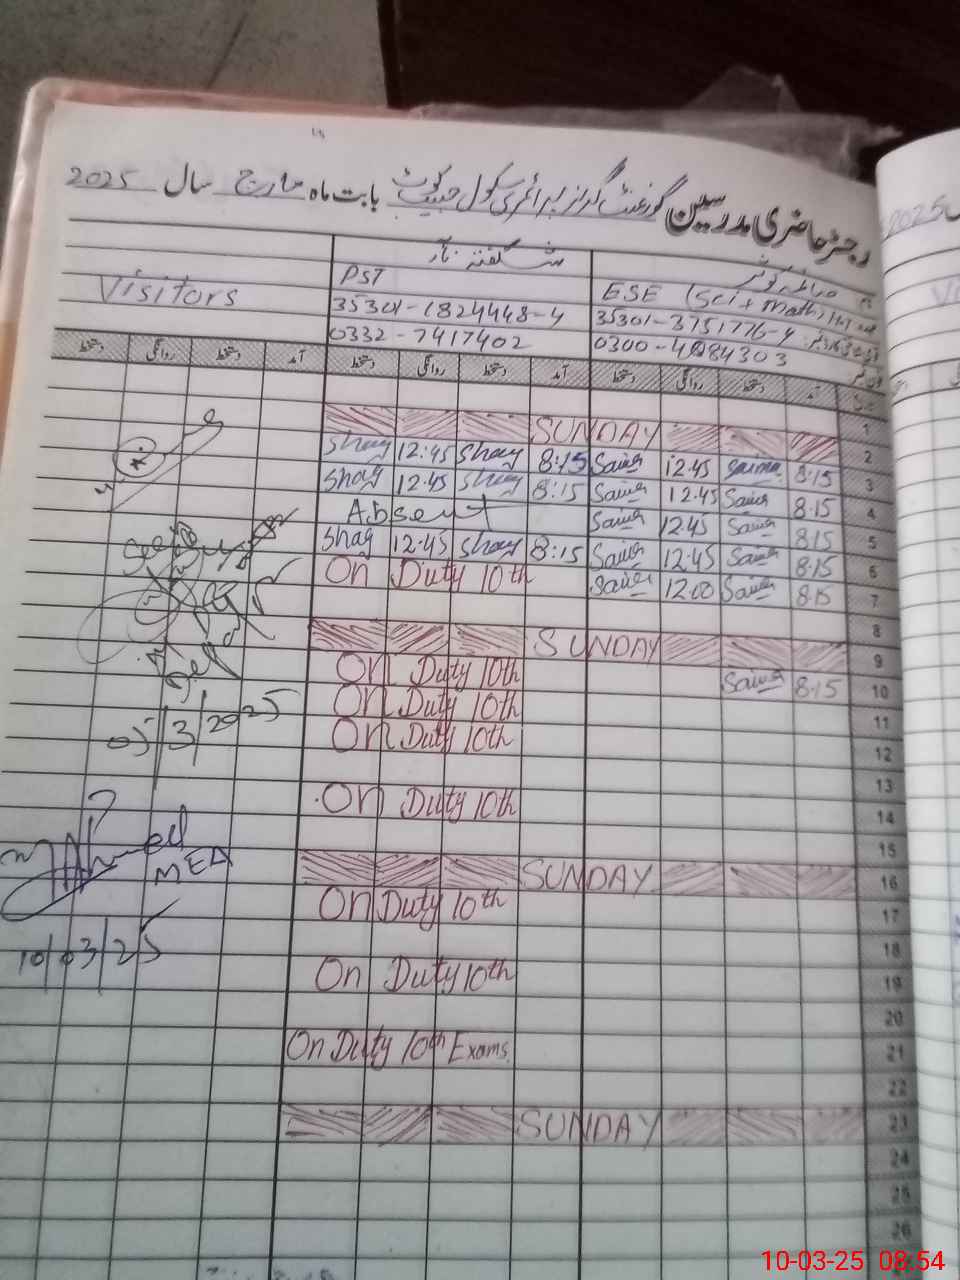 رجسٹر حاضری مدرسین گورنمنٹ گرلز پرائمری سکول بابت ماہ مارچ سال 2025
شگفتہ ناز
Visitors PST ESE (Sci + Math)
35301-1824448-4 35301-3751776-4
0332-7417402 0300-4084303
دستخط روانگی دستخط آمد دستخط روانگی دستخط آمد دستخط روانگی دستخط آمد
1
SUNDAY 2
Shag 12:45 Shag 8:15 Saima 12:45 Saima 8:15 3
Shag 12:45 Shag 8:15 Saima 12:45 Saima 8:15 4
Absent Saima 12:45 Saima 8:15 5
Shag 12:45 Shag 8:15 Saima 12:45 Saima 8:15 6
On Duty 10th Saima 12:00 Saima 8:15 7
8
SUNDAY 9
On Duty 10th Saima 8:15 10
On Duty 10th 11
05/3/2025 On Duty 10th 12
13
On Duty 10th 14
15
MEA SUNDAY 16
On Duty 10th 17
10/03/25 18
On Duty 10th 19
20
On Duty 10th Exams 21
22
SUNDAY 23
24
25
26
10-03-25 08:54